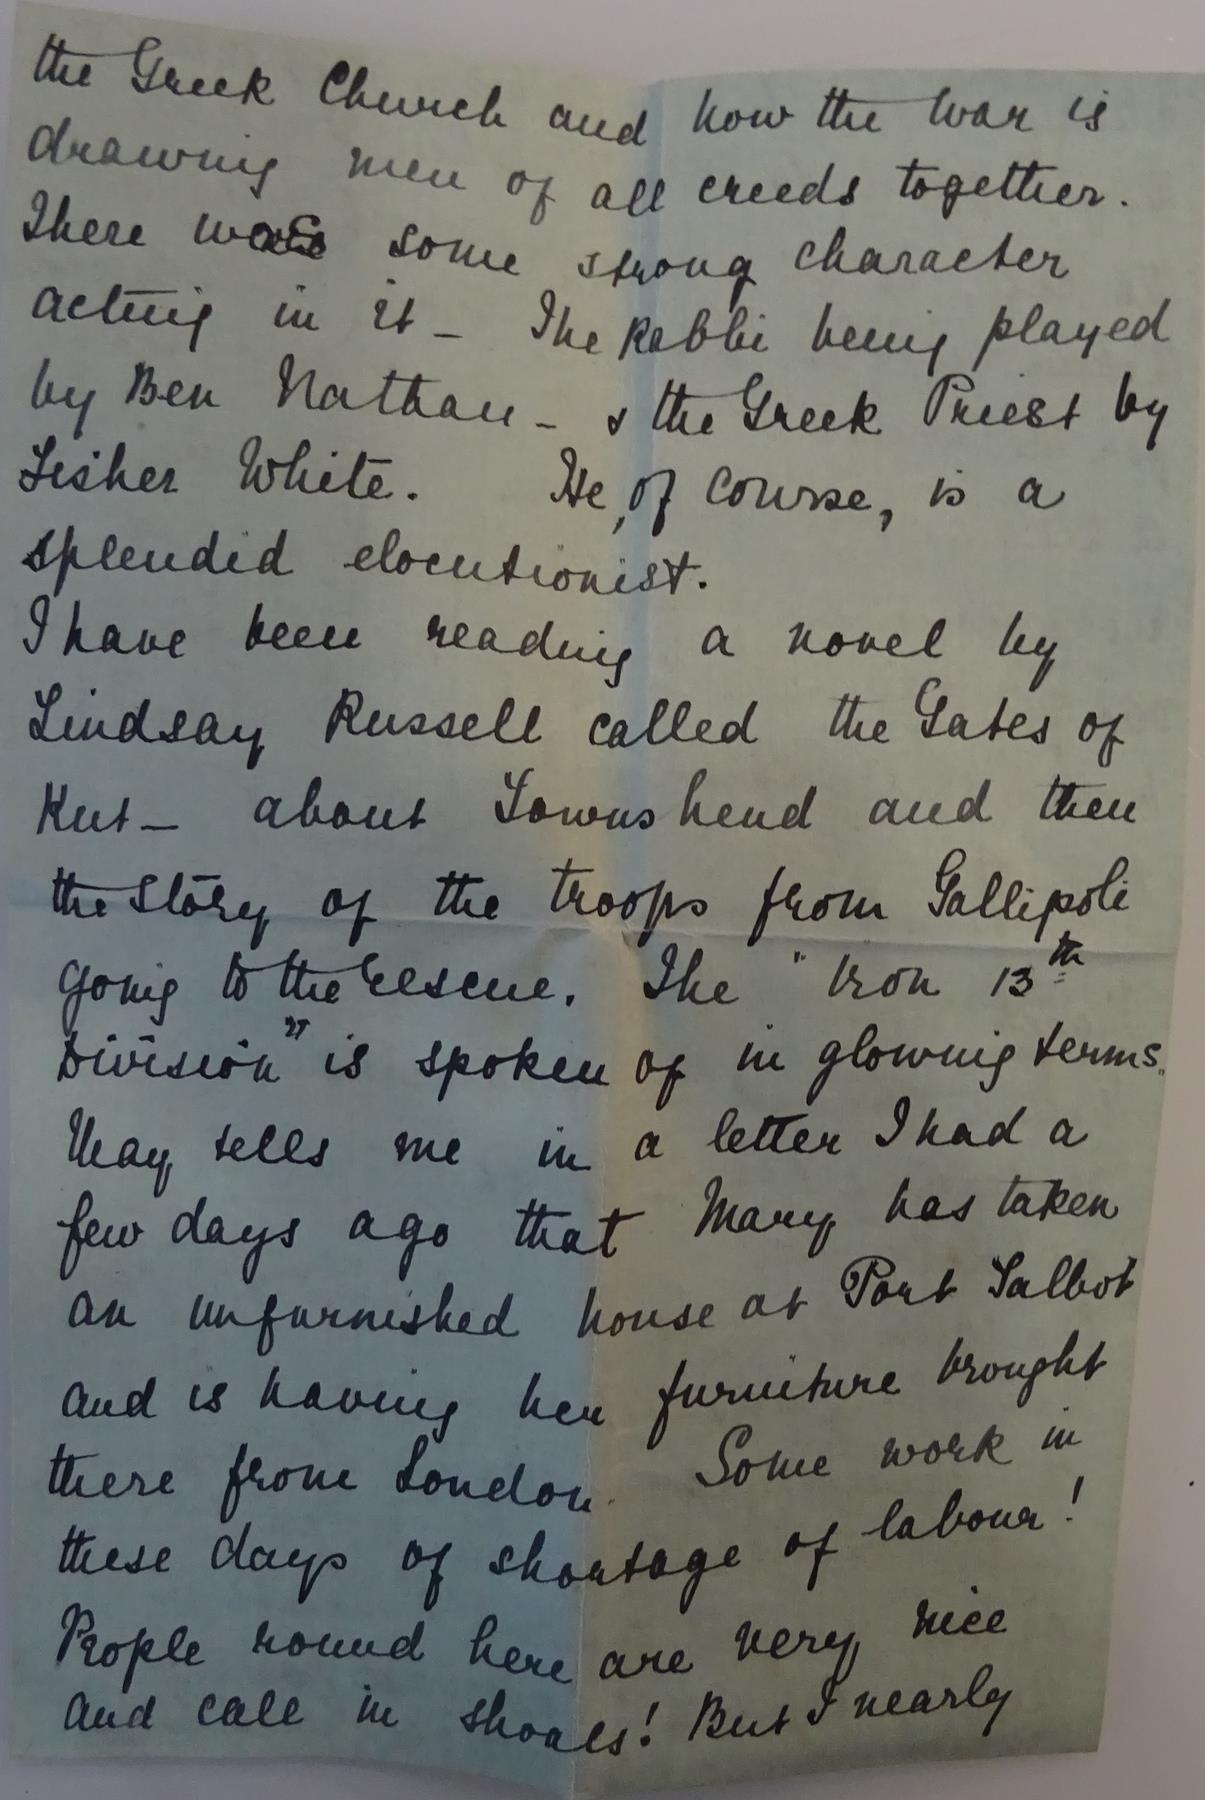 the Greek Church and how the war is
drawing men of all creeds together.
There was some strong character
acting in it – The Rabbi being played
by Ben Nathan – & the Greek Priest by
Fisher White. He, of course, is a
splendid elocutionist.
I have been reading a novel by
Lindsay Russell called the Gates of
Kut – about Townshend and then
the story of the troops from Gallipoli
going to the rescue. The "Iron 13th
Division" is spoken of in glowing terms.
May tells me in a letter I had a
few days ago that Mary has taken
an unfurnished house at Port Talbot
and is having her furniture brought
there from London. Some work in
these days of shortage of labour!
People round here are very nice
and call in shoals! But I nearly